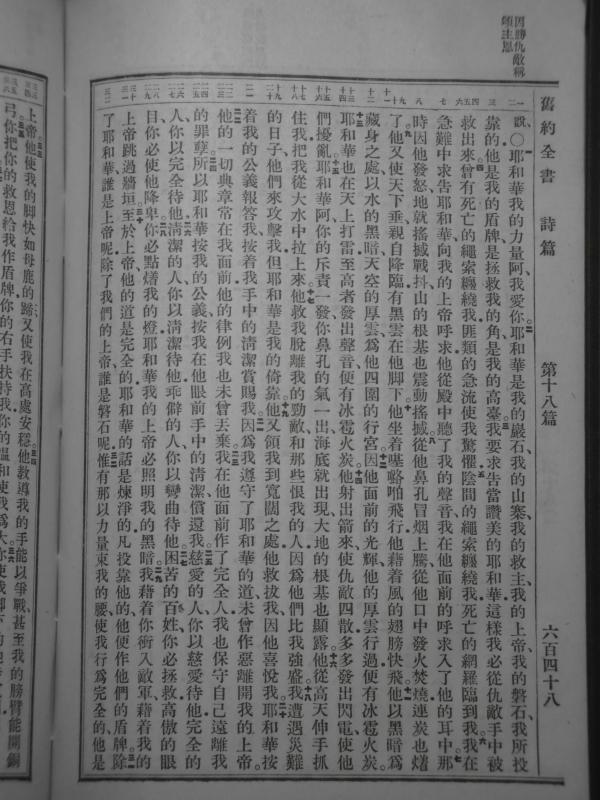 因勝仇敵稱
頌主恩
舊約全書 詩篇 第十八篇 六百四十八
說、〇耶和華我的力量阿、我愛你耶和華是我的巖石我的山寨我的救主我的上帝我的磐石我所投
靠的他是我的盾牌是拯救我的角是我的高臺我要求告當讚美的耶和華這樣我必從仇敵手中被
救出來曾有死亡的繩索纏繞我匪類的急流使我驚懼陰間的繩索纏繞我死亡的網羅臨到我我在
急難中求告耶和華向我的上帝呼求他從殿中聽了我的聲音我在他面前的呼求入了他的耳中那
時因他發怒地就搖撼戰抖山的根基也震動搖撼從他鼻孔冒烟上騰從他口中發火焚燒連炭也熸
了他又使天下垂親自降臨有黑雲在他脚下他坐着𠼻咱飛行他藉着風的翅膀快飛他以黑暗爲
藏身之處以水的黑暗天空的厚雲爲他四圍的行宮因他面前的光輝他的厚雲行過便有冰雹火炭
耶和華也在天上打雷至高者發出聲音便有冰雹火炭他射出箭來使仇敵四散多多發出閃電使他
們擾亂耶和華阿你的斥責一發你鼻孔的氣一出海底就出現大地的根基也顯露他從高天伸手抓
住我把我從大水中拉上來他救我脫離我的勁敵和那些恨我的人因爲他們比我強盛我遭遇災難
的日子他們來攻擊我但耶和華是我的倚靠他又領我到寬闊之處他救拔我因他喜悅我耶和華按
着我的公義報答我按着我手中的清潔賞賜我因爲我遵守了耶和華的道未曾作惡離開我的上帝
他的一切典章常在我面前他的律例我也未曾丟棄我在他面前作了完全人我也保守自己遠離我
的罪孽所以耶和華按我的公義按我在他眼前手中的清潔償還我慈愛的人你以慈愛待他完全的
人你以完全待他清潔的人你以清潔待他乖僻的人你以彎曲待他困苦的百姓你必拯救高傲的眼
目你必使他降卑你必點熸我的燈耶和華我的上帝必照明我的黑暗我藉着你衝入敵軍藉着我的
上帝跳過牆垣至於上帝他的道是完全的耶和華的話是煉淨的凡投靠他的他便作他們的盾牌除
了耶和華誰是上帝呢除了我們的上帝誰是磐石呢惟有那以力量束我的腰使我行爲完全的他是
上帝他使我的脚快如母鹿的蹄又使我在高處安穩他敎導我的手能以爭戰甚至我的膀臂能開銅
弓你把你的救恩給我作盾牌你的右手扶持我你的溫和使我爲大